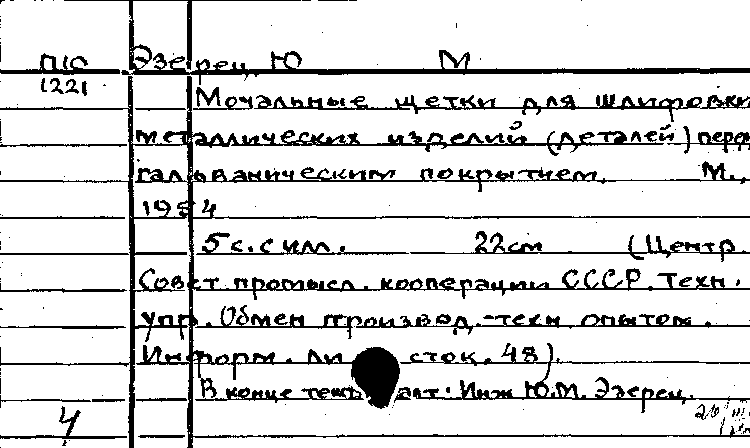 Эзерец, Ю М
1221
Мочальные щетки для шлифовки
металлических изделий (деталей) перед
гальваническим покрытием. М.,
1954
5 с. с илл. 22 см (Центр.
Совет промысл. кооперации СССР. Техн.
упр. Обмен производ.-техн опытом.
Информ. листок. 48).
В конце текста авт: Инж Ю.М. Эзерец.
4